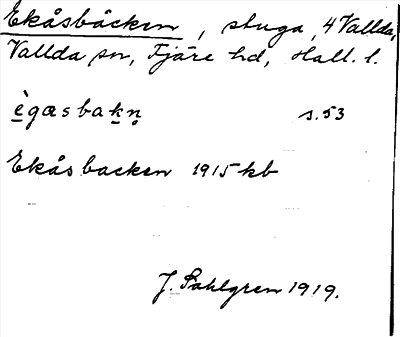 Ekåsbäcken, stuga, 4 Vallda,
Vallda sn, Fjäre hd, Hall. l.
ègæsbakn̥ s.53
Ekåsbacken 1915 kb
J. Sahlgren 1919.